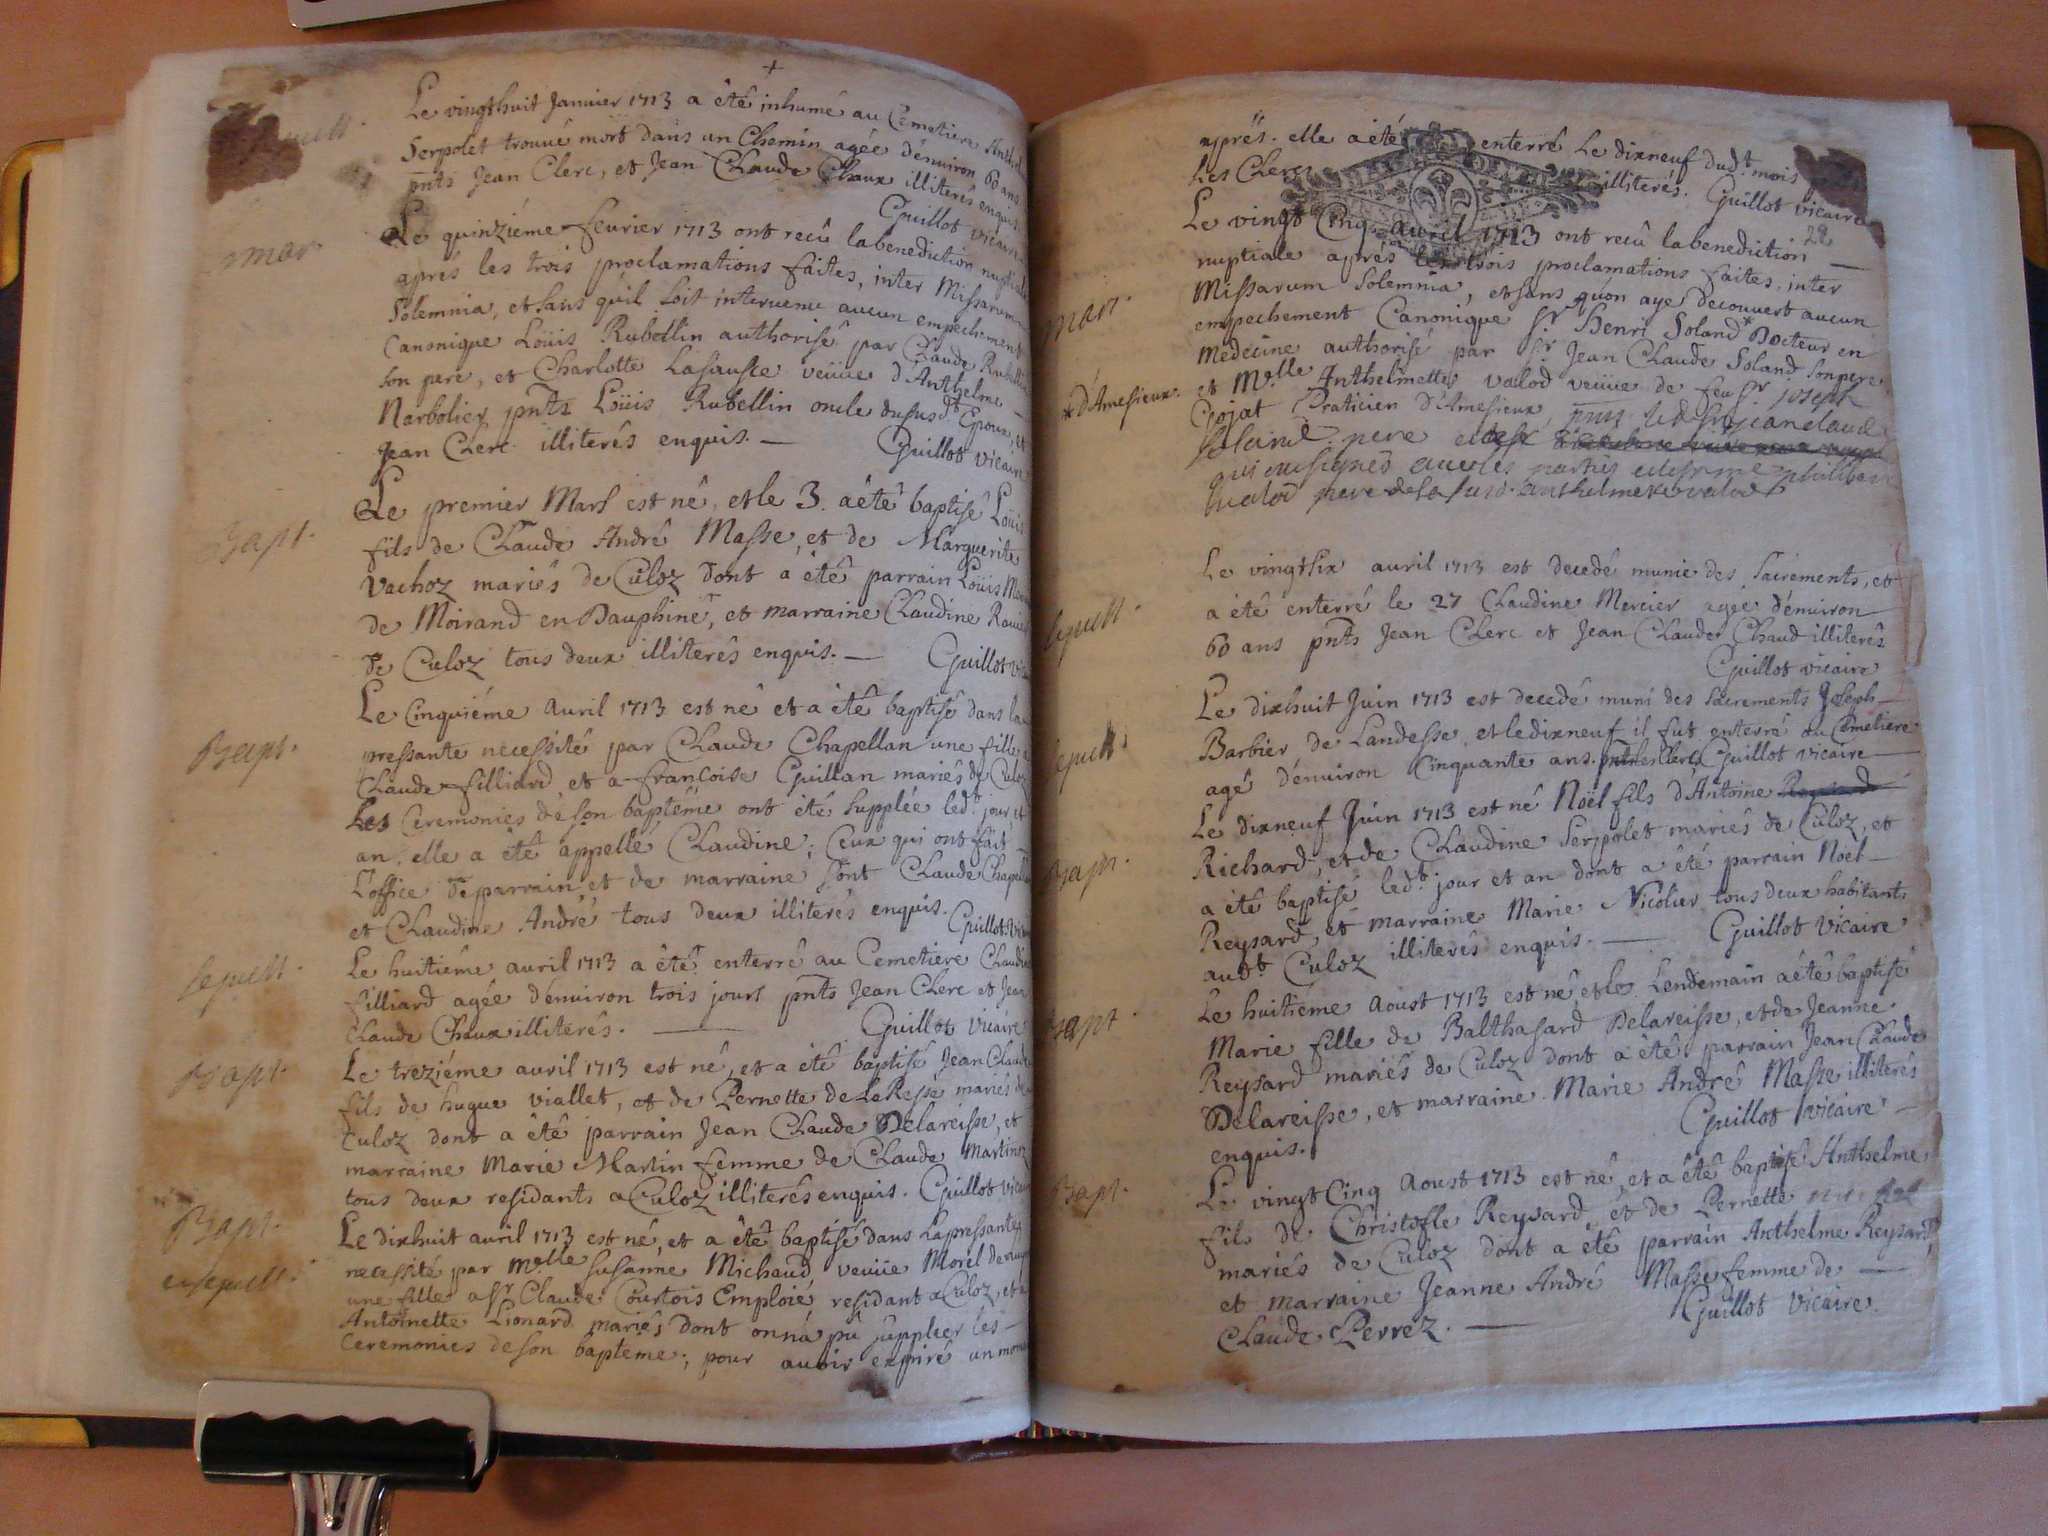 Le vingthuit Janvier 1713 a êtê inhumé au Cemetiere
sepult.
Serpolet trouvé mort dans un Chemin agée d'enuiron 60 ans
pnts Jean Clerc, et Jean Claude Chaux illiterés enquis
Guillot vicaire
mar.
Le quinziéme feurier 1713 ont recû la benediction nuptiale
aprés les trois proclamations faites, inter Missarum
Solemnia, et sans qu'il soit interuenu aucun empechement
Canonique Loüis Rubellin authorisé par Claude Rubellin
son pere, et Charlotte Lasausse veüue d'Anthelme
Narbolier pnts Loüis Rubellin oncle dususdt Epoux, et
Jean Clerc illiterês enquis. — Guillot vicaire
Bapt.
Le premier Mars est nê, et le 3. aêtê baptisê Loüis
fils de Claude André Masse, et de Marguerite
Vachoz mariés de Culoz dont a êtê parrain Loüis
de Moirand en Dauphiné, et marraine Claudine
de Culoz tous deux illiterés enquis. — Guillot
Bapt.
Le Cinquiéme auril 1713 est nê et a êtê baptisé dans la
pressante necessité par Claude Chapellan une fille a
Claude filliard et a francoise Guillan mariés de Culoz
Les Ceremonies de son baptéme ont êtê supplée ledt jour et
an, elle a êtê appellé Claudine; Ceux qui ont fait
l'office de parrain et de marraine sont Claude
et Claudine André tous deux illiterés enquis. Guillot
sepult.
Le huitiéme auril 1713 a êtê enterrê au Cemetiere Claudine
filliard agée d'enuiron trois jours pnts Jean Clerc et Jean
Claude Chaux illiterés. — Guillot vicaire
Bapt.
Le treziéme auril 1713 est nê, et a êtê baptisé Jean Claude
fils de hugue viallet, et de Pernette de La Resse mariés de
Culoz dont a êtê parrain Jean Claude Delareisse, et
marraine Marie Martin femme de Claude Martinoz
tous deux residants a Culoz illiterés enquis. Guillot vicaire
Bapt.
Le dixhuit auril 1713 est né, et a êtê baptisé dans la pressante
necessité par Melle Susanne Michaud veüue Morel
et sepult.
une fille a Sr Claude Courtois Emploié residant a Culoz, et a
Antoinette Lionard mariés dont on n'a pû suppleer les
Ceremonies de son baptéme; pour auoir expiré un
aprés. elle a êté enterré Le dixneuf dudt mois
Les Clercs illiterés. Guillot vicaire
29
mar.
Le vingt Cinq auril 1713 ont recû la benediction
nuptiale aprés les trois proclamations faites, inter
Missarum Solemnia, et sans qu'on aye decouvert aucun
empechement Canonique Sr Henri Soland* Docteur en
medecine authorisé par Sr Jean Claude Soland son pere
* d'Amesieux.
et Melle Anthelmette valod veüue de feu Sr Joseph
Gojat Praticien d'Amesieux, pnts led Sr Jean claud
Soland pere
qui ont signés auec les parties
valod pere de la susd. anthelmete valod
sepult.
Le vingtsix auril 1713 est decedé munie des Sacrements, et
a êtê enterré le 27 Claudine Mercier agée d'enuiron
60 ans pnts Jean Clerc et Jean Claude Chaud illiterés
Guillot vicaire
sepult.
Le dixhuit Juin 1713 est decedê muni des sacrements Joseph
Barbier de Landesse, et le dixneuf il fut enterré au Cemetiere
agé d'enuiron Cinquante ans. pnts les Clercs Guillot vicaire
Bapt.
Le dixneuf Juin 1713 est né Noël fils d'Antoine
Richard, et de Claudine Serpolet mariés de Culoz, et
a êtê baptisé ledt jour et an dont a êté parrain Noël
Reysard, et marraine Marie Nicolier tous deux habitants
audt Culoz illiterés enquis. — Guillot vicaire
Bapt.
Le huitieme Aoust 1713 est nê et le Lendemain aêtê baptisé
Marie fille de Balthasard Delareisse, et de Jeanne
Reysard mariés de Culoz dont a êté parrain Jean Claude
Delareisse, et marraine Marie André Masse illiterés
enquis. Guillot vicaire
Bapt.
Le vingt Cinq Aoust 1713 est né, et a êtê baptisé Anthelme
fils de Christofle Reysard, et de Pernette
mariés de Culoz dont a êté parrain Anthelme Reysard
et marraine Jeanne André Masse femme de
Claude Perrez. — Guillot Vicaire